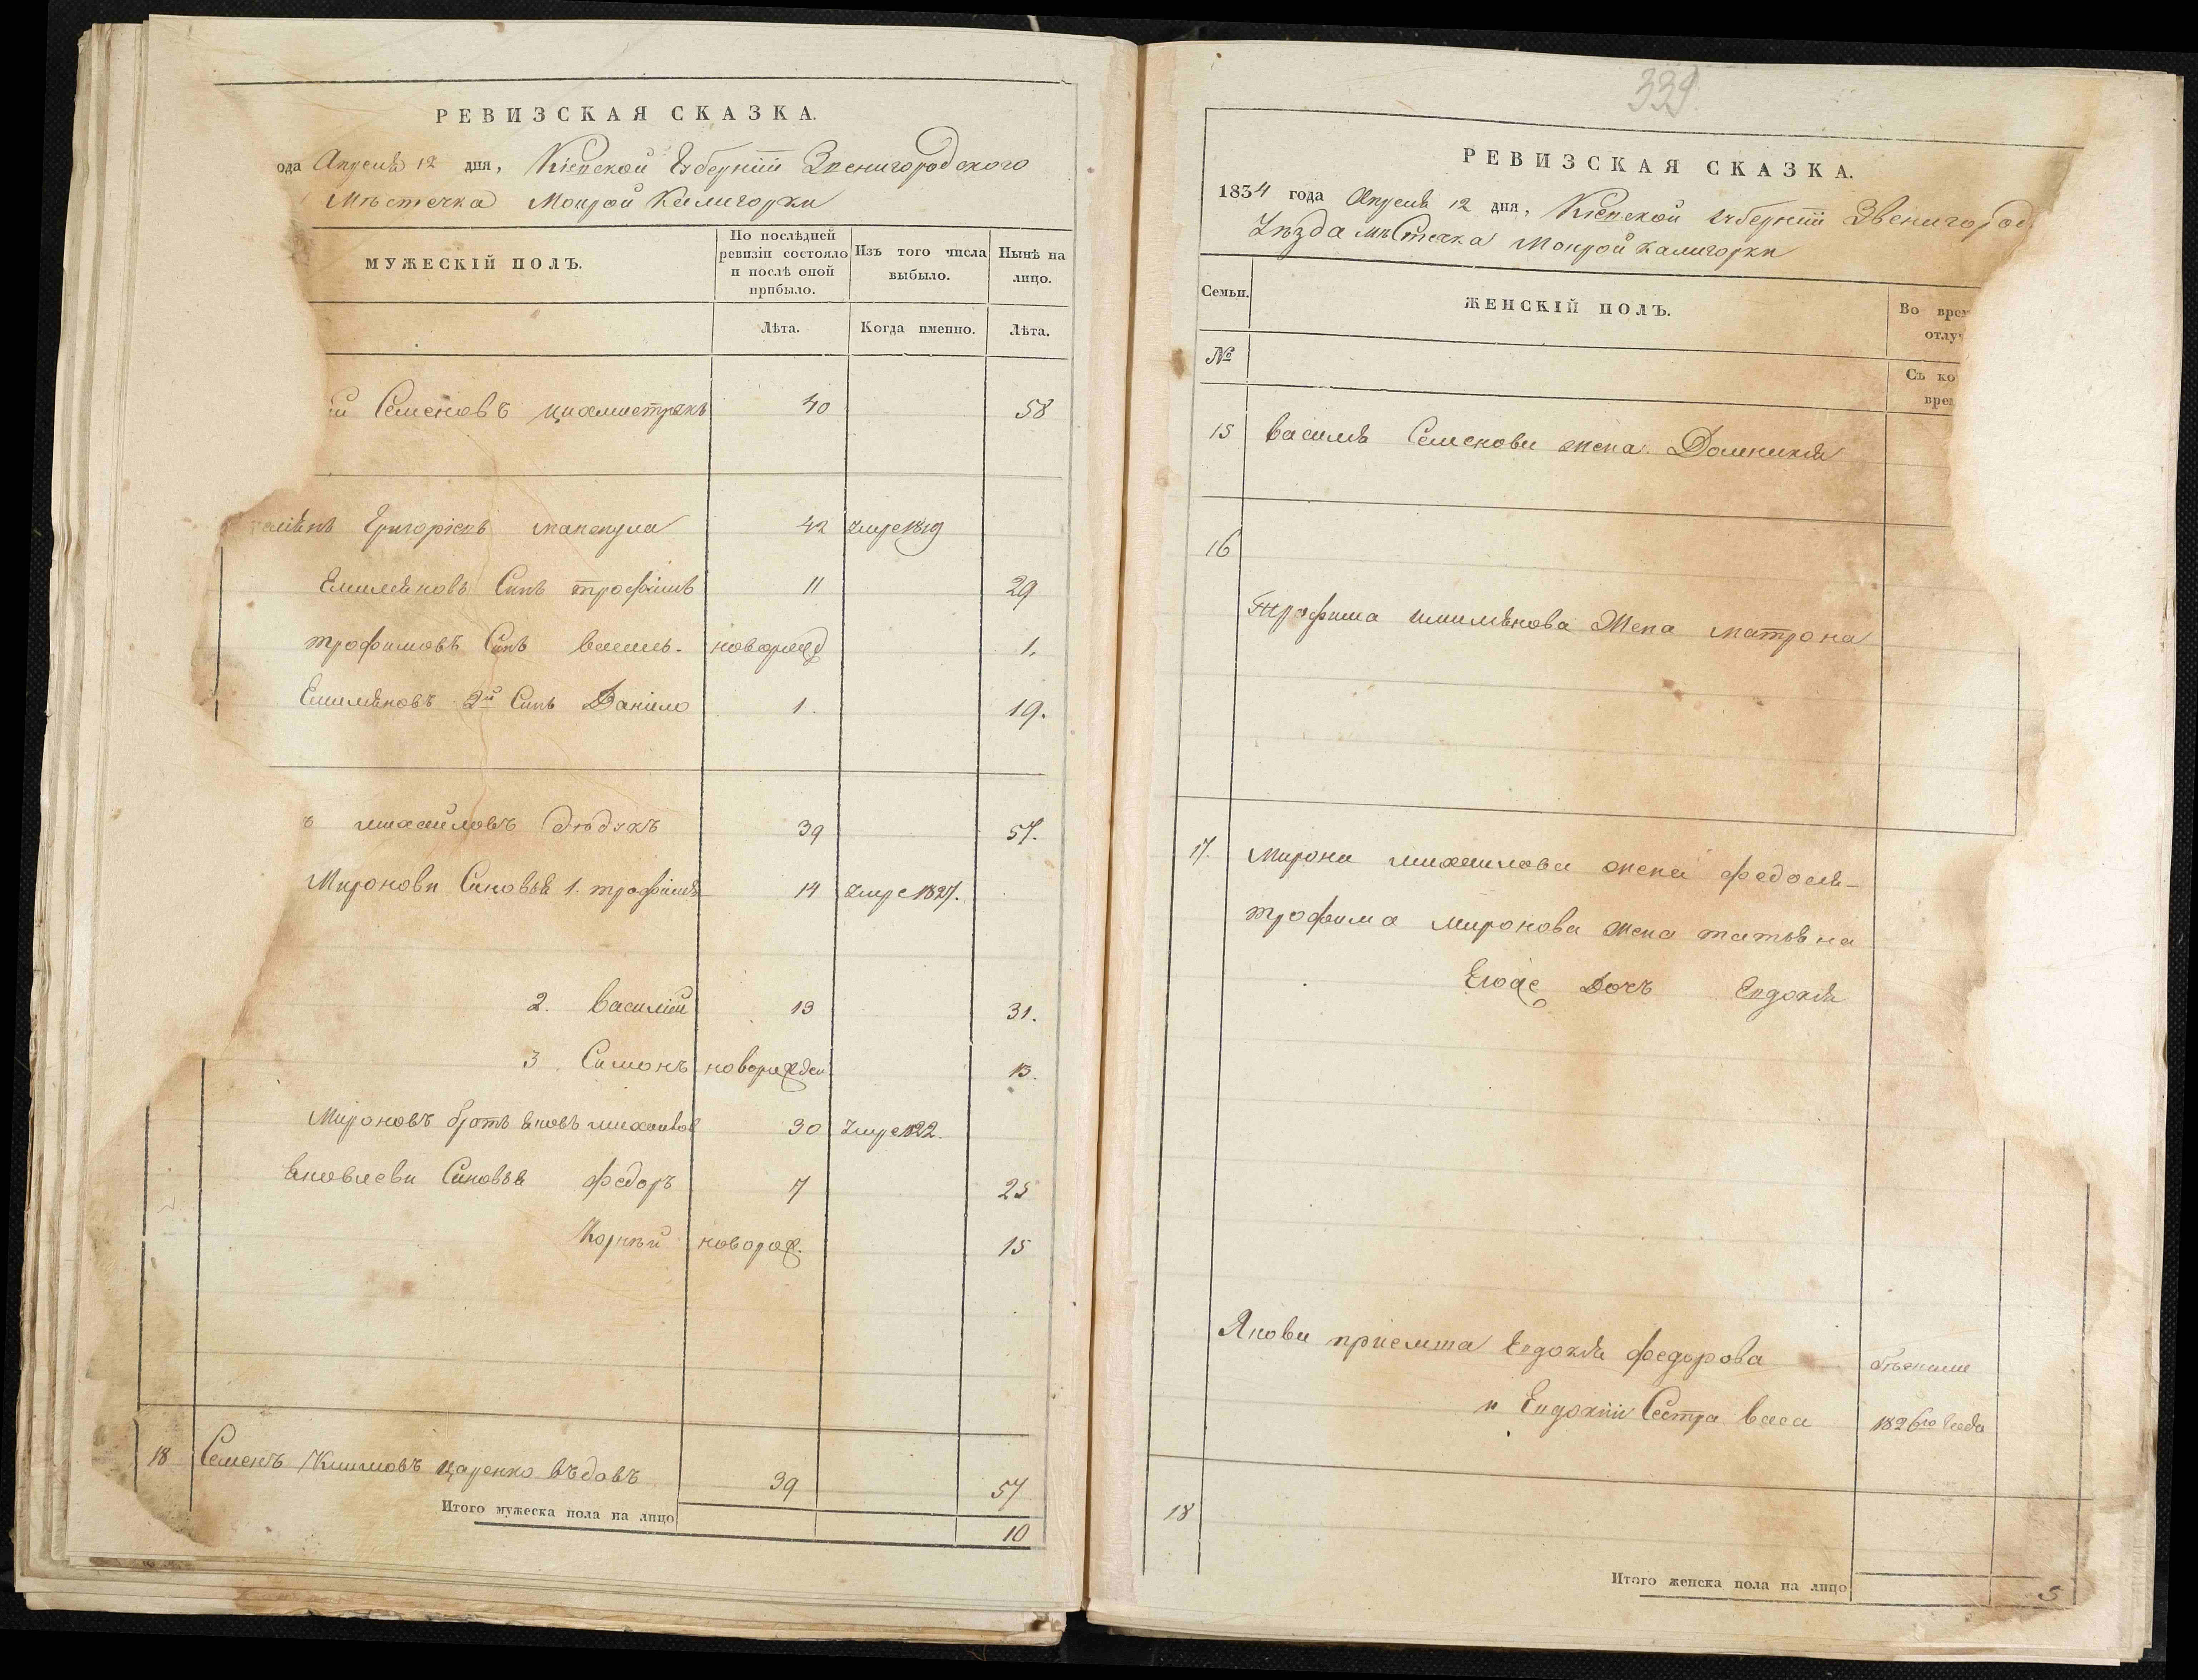 РЕВИЗСКАЯ СКАЗКА.
ода Апреля 12 дня, Кіевской Губерніи Звенигородского
Мѣстечка Мокрой Калигорки
МУЖЕСКІЙ ПОЛЪ.
По послѣдней ревизіи состояло и послѣ оной прибыло.
Изъ того числа выбыло.
Нынѣ на лицо.
Лѣта.
Когда именно.
Лѣта.
й Семеновъ 40 58
Григоріевъ 42 Умре 1819
Емиляновъ Синъ трофимъ 11 29
трофимовъ Синъ василь- новорожд 1.
Емиляновъ 2й Синъ Данило 1. 19.
ъ михайловъ дюдюкъ 39 57.
Миронови Сыновья 1. трофимъ 14 Умре 1827.
2. Василій 13 31.
3 Симонъ новорожден 13.
Мироновъ братъ яковъ михайлов 30 Умре 1822.
Яковлеви Синовья федоръ 7 25
Корнѣй новорож. 15
18 Семенъ Климовъ Царенко вѣдовъ 39 57
Итого мужеска пола на лицо 10
339.
РЕВИЗСКАЯ СКАЗКА.
1834 года Апреля 12 дня, Кіевской Губерніи Звенигород
Уѣзда мѣстечка Мокрой Калигорки
Семьи.
ЖЕНСКІЙ ПОЛЪ.
Во врем
отлуч
№
Съ ко
врем
15 Василя Семенова жена Домникія
16
Трофима имилянова Жена матрона
17. Мирона михайлова жена федося-
трофима миронова жена татьяна
Егоже Дочь Евдокія
Якова приемша Евдокія федорова
и Евдокіи Сестра васа 1826го года
18
Итого женска пола на лицо 5